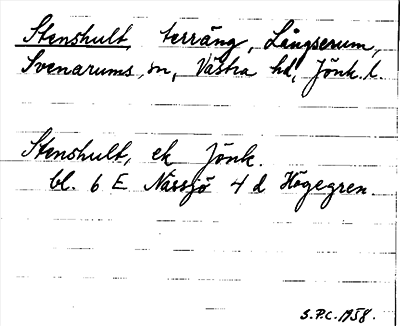 Stenshult, terräng, Långserum,
Svenarums sn, Västra hd, Jönk. l.
Stenshult, ek Jönk.
bl. 6 E Nässjö 4 d Högegren.
S.P.C. 1958.